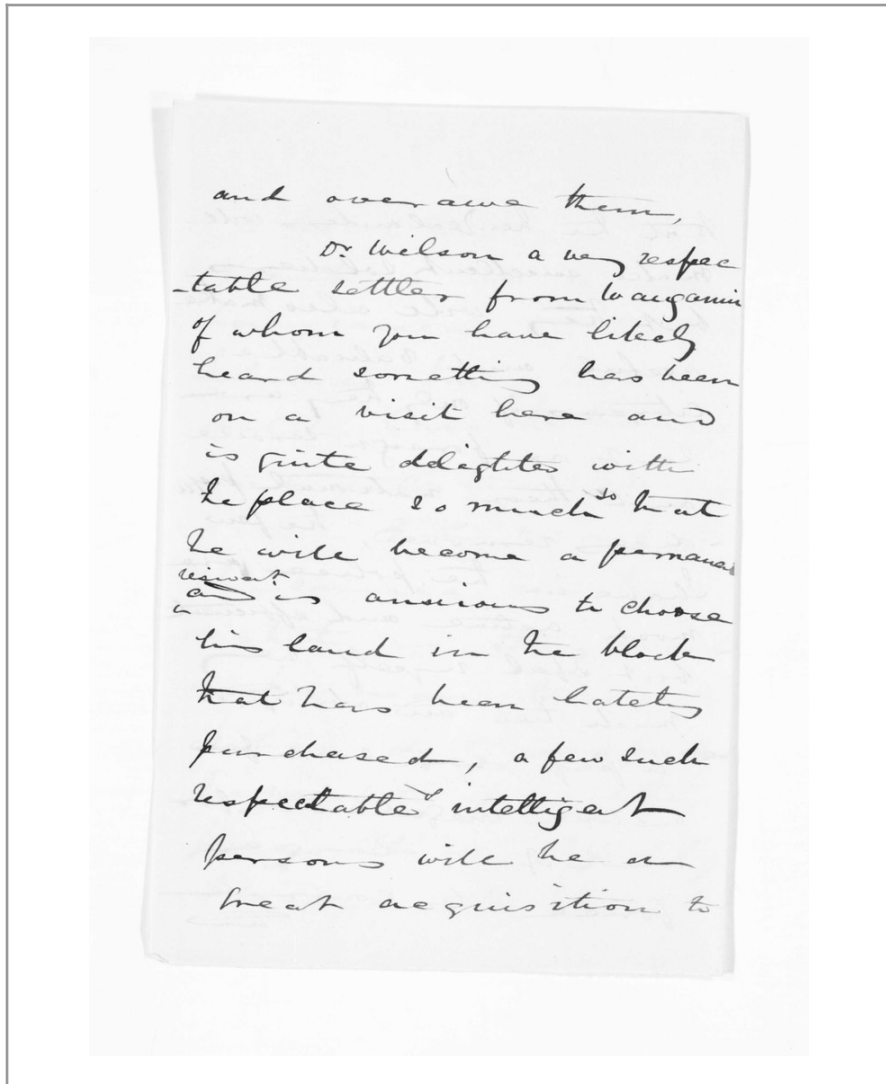 and overawe them,
Dr. Wilson a very respec
-table settler from Wanganui
of whom you have likely
heard something has been
on a visit here and
is quite delighted with
the place so much so that
he will become a permanent
resident
and is anxious to choose
his land in the block
that has been lately
purchased, a few such
respectable & intelligent
persons will be a
great acquisition to